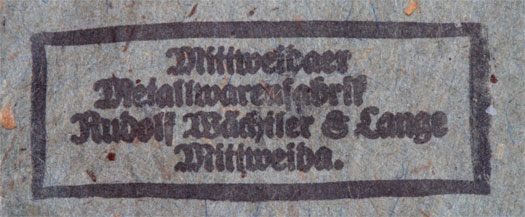 Mittweidaer
Metallwarenfabrik
Rudolf Wächtler & Lange
Mittweida.